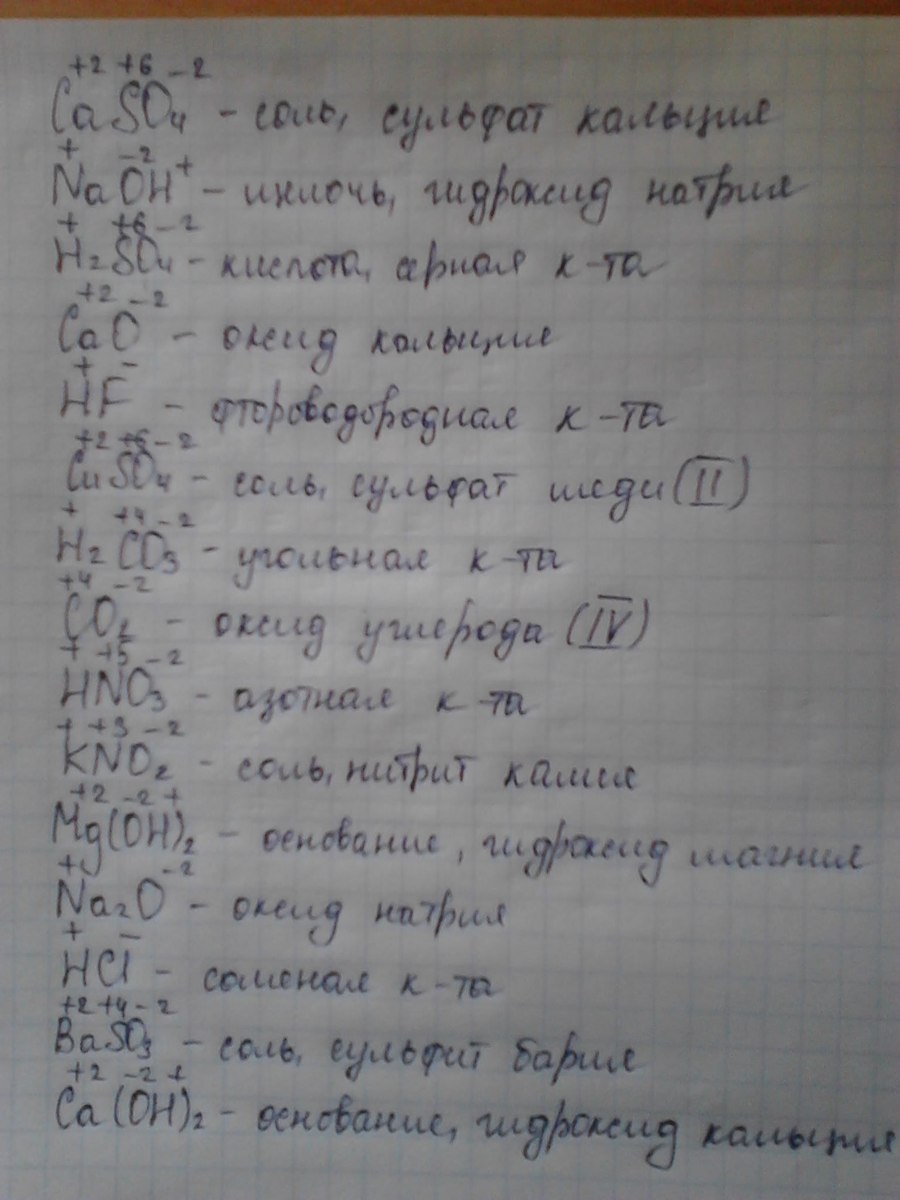 +2 +6 -2
CaSO₄ - соль, сульфат кальция
+ -2 +
NaOH - щелочь, гидроксид натрия
+ +6 -2
H₂SO₄ - кислота, серная к-та
+2 -2
CaO - оксид кальция
+ -
HF - фтороводородная к-та
+2 +6 -2
CuSO₄ - соль, сульфат меди (II)
+ +4 -2
H₂CO₃ - угольная к-та
+4 -2
CO₂ - оксид углерода (IV)
+ +5 -2
HNO₃ - азотная к-та
+ +3 -2
KNO₂ - соль, нитрит калия
+2 -2 +
Mg(OH)₂ - основание, гидроксид магния
+ -2
Na₂O - оксид натрия
+ -
HCl - соленая к-та
+2 +4 -2
BaSO₃ - соль, сульфит бария
+2 -2 +
Ca(OH)₂ - основание, гидроксид кальция